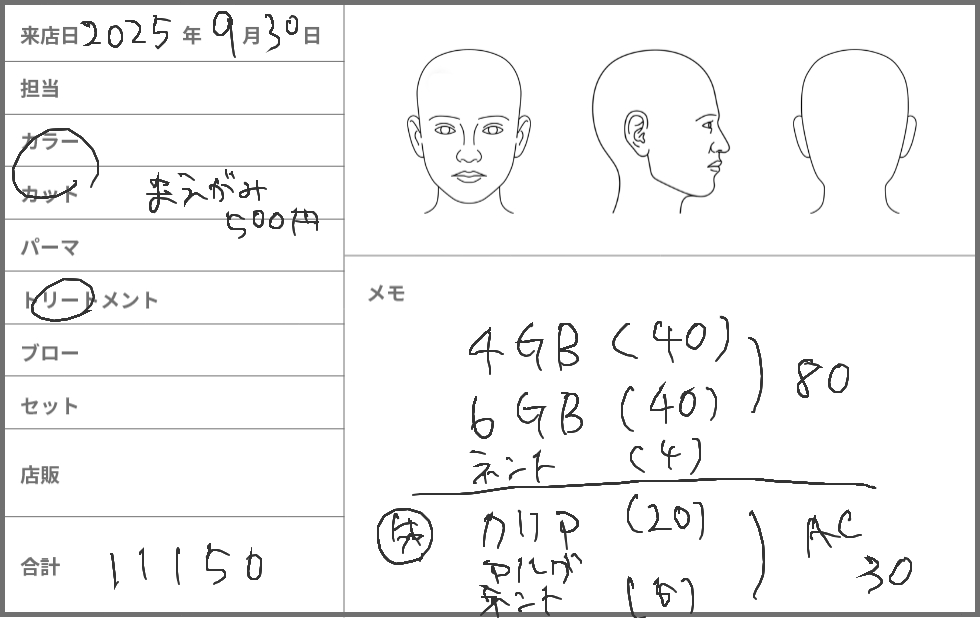 来店日 2025 年 9 月 30 日
担当
カラー
カット まえがみ
500円
パーマ
トリートメント
ブロー
セット
店販
合計 11150
メモ
4GB (40)
6GB (40) 80
(4)
(20) AC
30